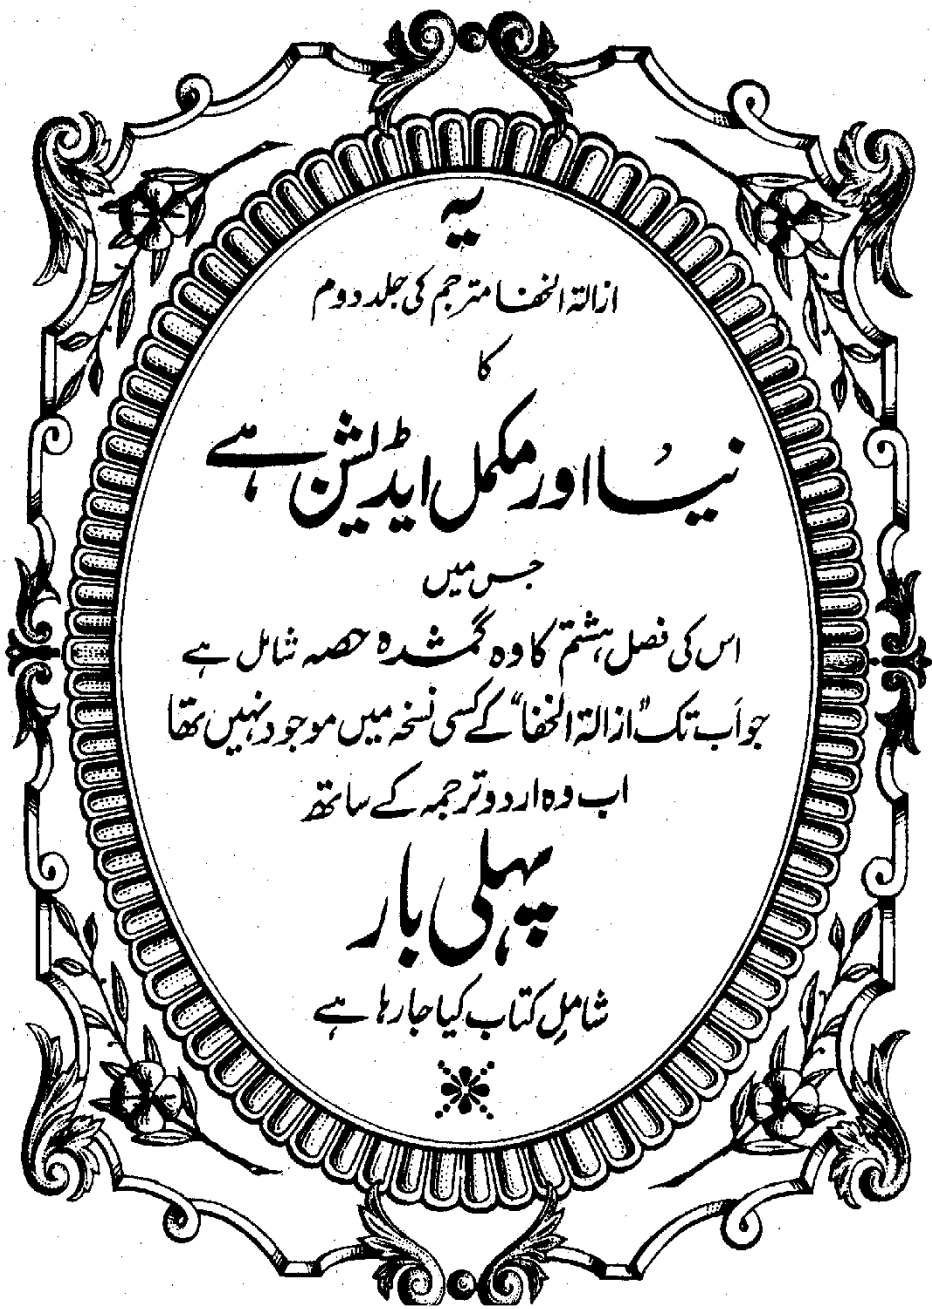 یہ
ازالۃ الخفا مترجم کی جلد دوم
کا
نیا اور مکمل ایڈیشن ہے
جس میں
اس کی فصل ہشتم کا وہ گمشدہ حصہ شامل ہے
جو اَب تک "ازالۃ الخفا" کے کسی نسخہ میں موجود نہیں تھا
اب وہ اردو ترجمہ کے ساتھ
پہلی بار
شاملِ کتاب کیا جا رہا ہے